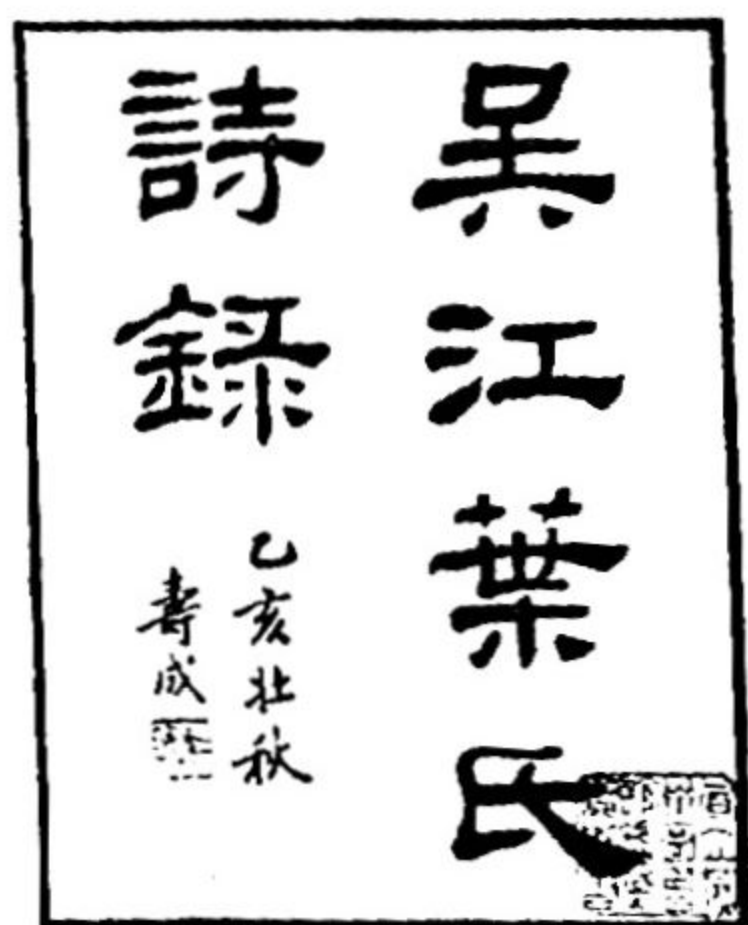 吴江葉氏
詩録
乙亥壯秋
壽成